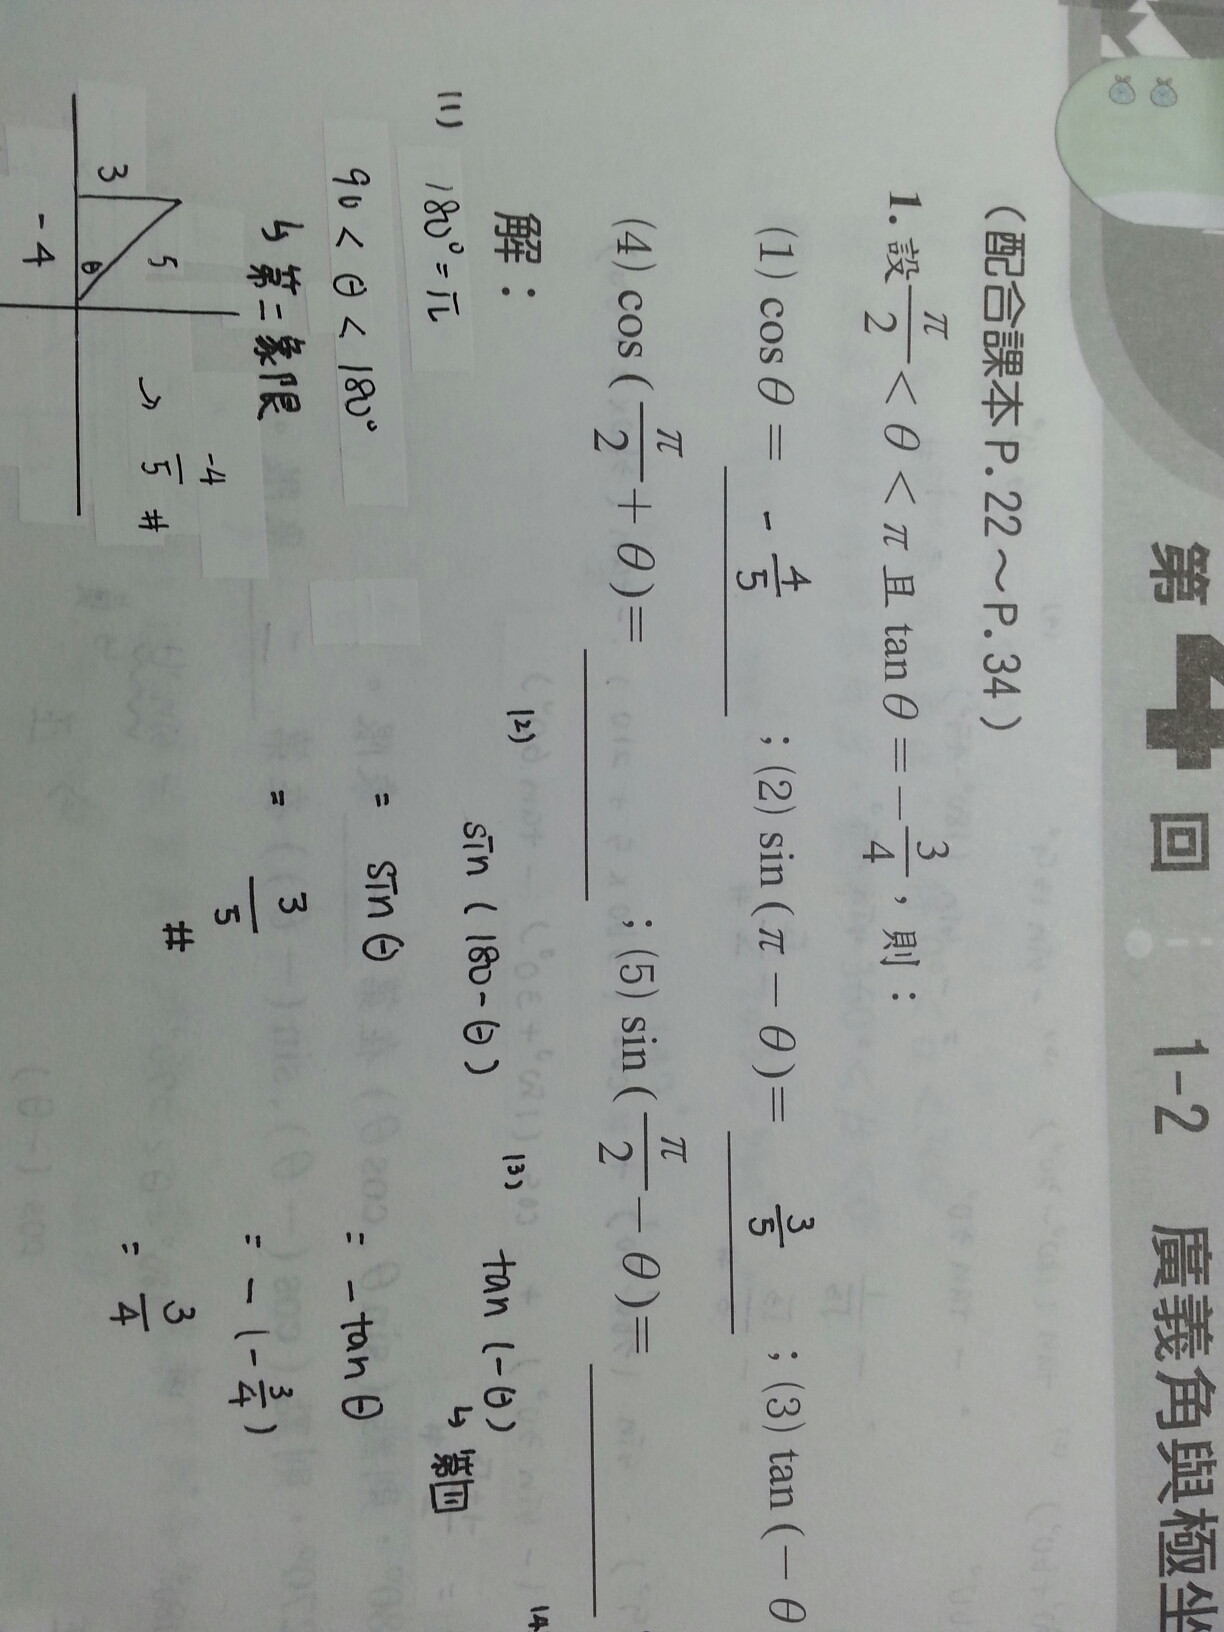 第4回 1-2 廣義角與極坐
(配合課本P.22~P.34)
1. 設 π/2 < θ < π 且 tan θ = -3/4, 則:
(1) cos θ = -4/5 ; (2) sin ( π - θ ) = 3/5 ; (3) tan ( - θ
(4) cos ( π/2 + θ ) = ; (5) sin ( π/2 - θ ) =
解:
(1) 180° = π
90 < θ < 180°
↳ 第二象限
3 5 θ
-4
→ -4/5 #
(2) sin ( 180 - θ )
= sin θ
= 3/5
#
(3) tan ( - θ )
↳ 第四
= - tan θ
= - ( - 3/4 )
= 3/4
(4